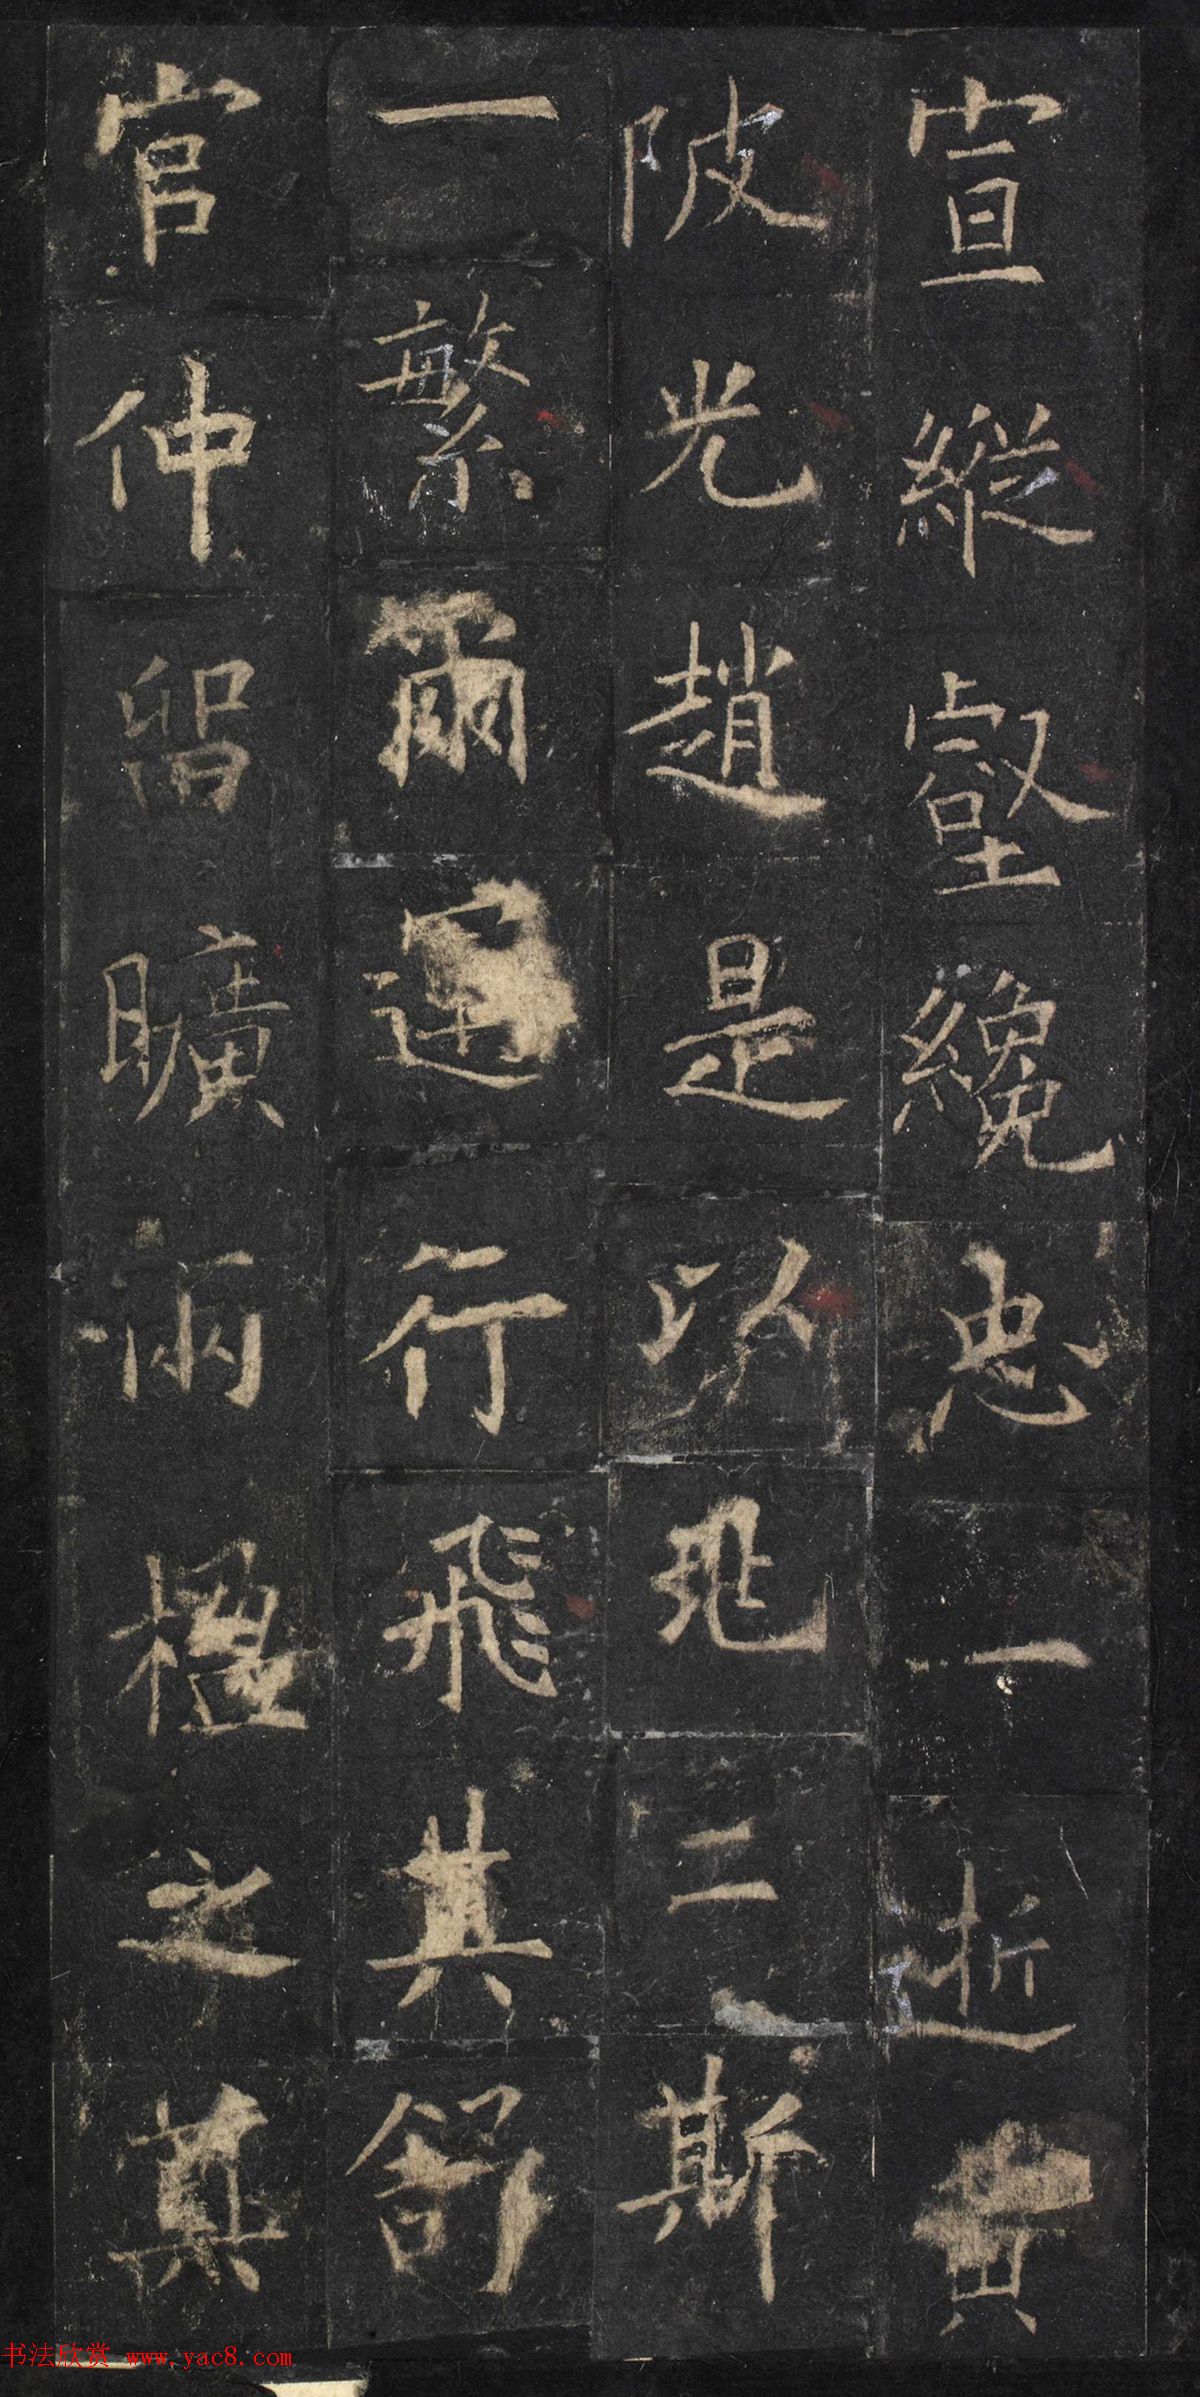 宣縱壑纔忠一逝
陂光趙是以二斯
一繁爾行飛其
官仲留曠兩楹之奠
书法欣赏 www.yac8.com